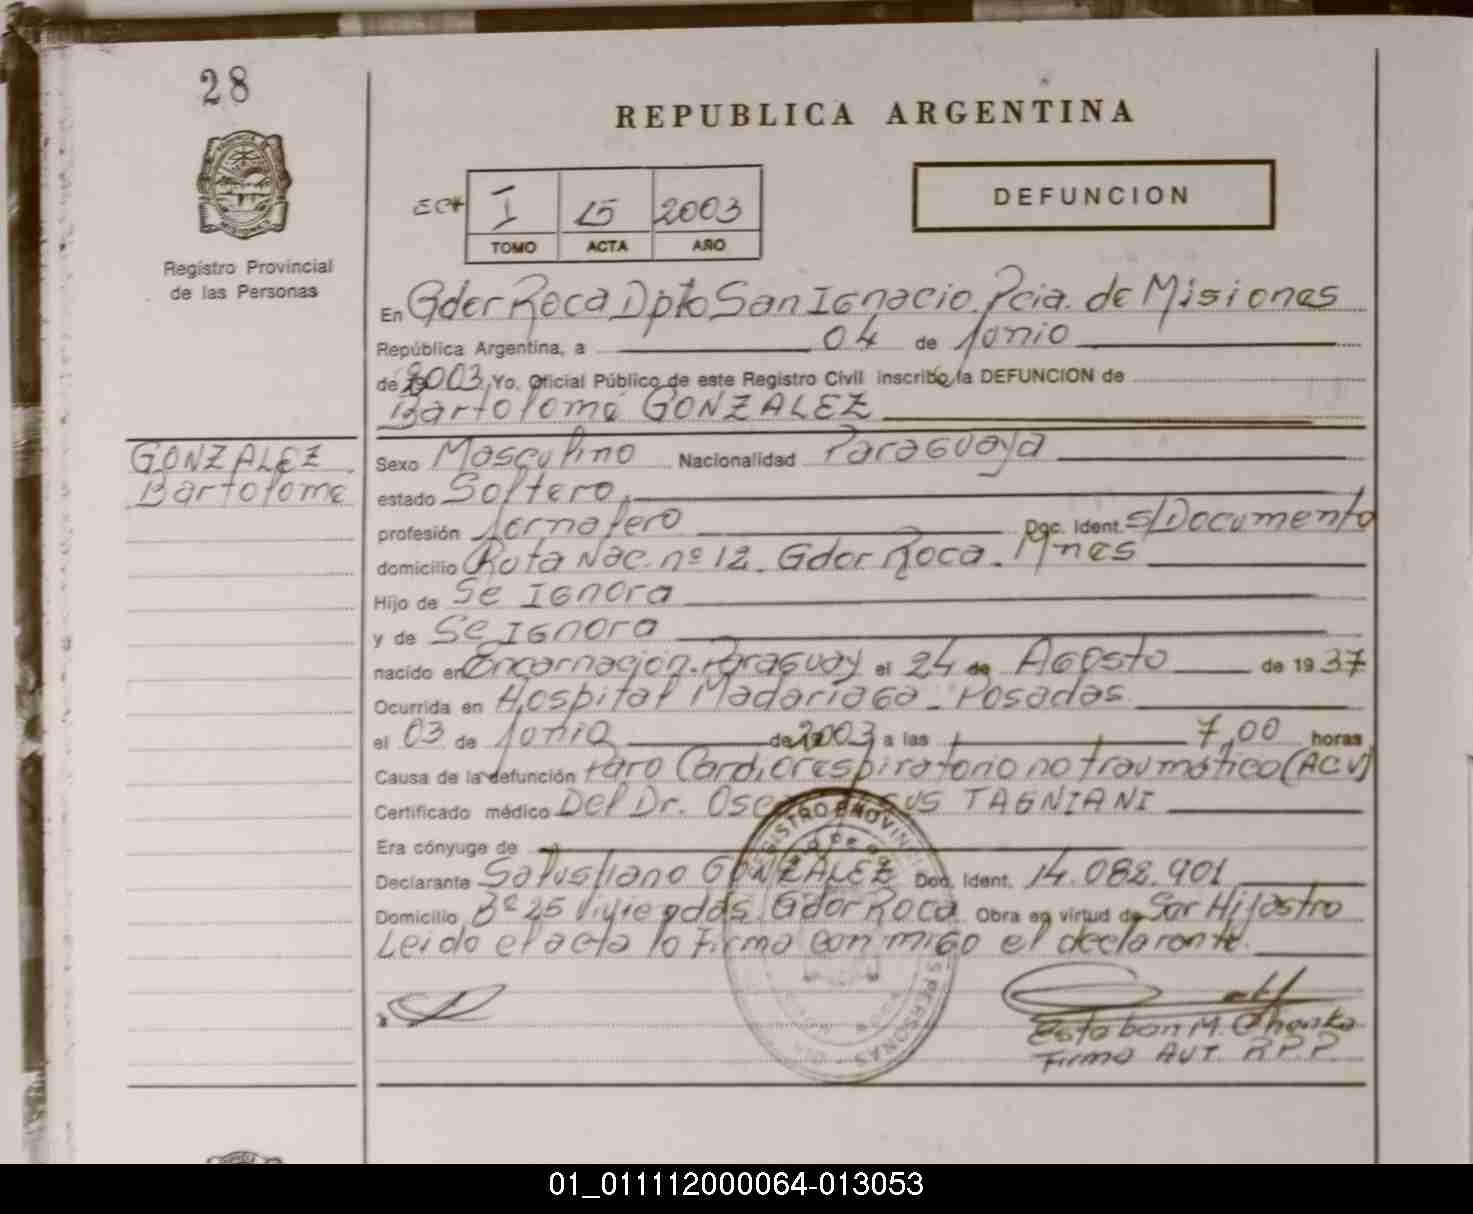 28
REPUBLICA ARGENTINA
I 15 2003
TOMO ACTA AÑO
DEFUNCION
Registro Provincial
de las Personas
En Gdor Roca Dpto San Ignacio. Pcia. de Misiones
República Argentina, a 04 de Junio
de 2003, Yo, Oficial Público de este Registro Civil inscribo, la DEFUNCION de
Bartolomé GONZALEZ
GONZALEZ
Bartolome
Sexo Masculino Nacionalidad Paraguaya
estado Soltero
profesión Jornalero Doc. Ident. S/Documento
domicilio Ruta Nac. nº 12. Gdor Roca. Mnes
Hijo de Se Ignora
y de Se Ignora
nacido en Encarnación. Paraguay el 24 de Agosto de 1937
Ocurrida en Hospital Madariaga - Posadas.
el 03 de Junio de 2003 a las 7,00 horas
Causa de la defunción Paro Cardiorespiratorio no traumático (ACV)
Certificado médico Del Dr. TAGNIANI
Era cónyuge de
Declarante Salustiano GONZALEZ Doc. Ident. 14.082.901
Domicilio Bº 25 Viviendas. Gdor Roca Obra en virtud de Ser Hijastro
Leido el acta lo Firma con migo el declarante.
Esteban M.
Firma AUT. R.P.P.
REGISTRO PROVINCIAL DE LAS PERSONAS
01_011112000064-013053